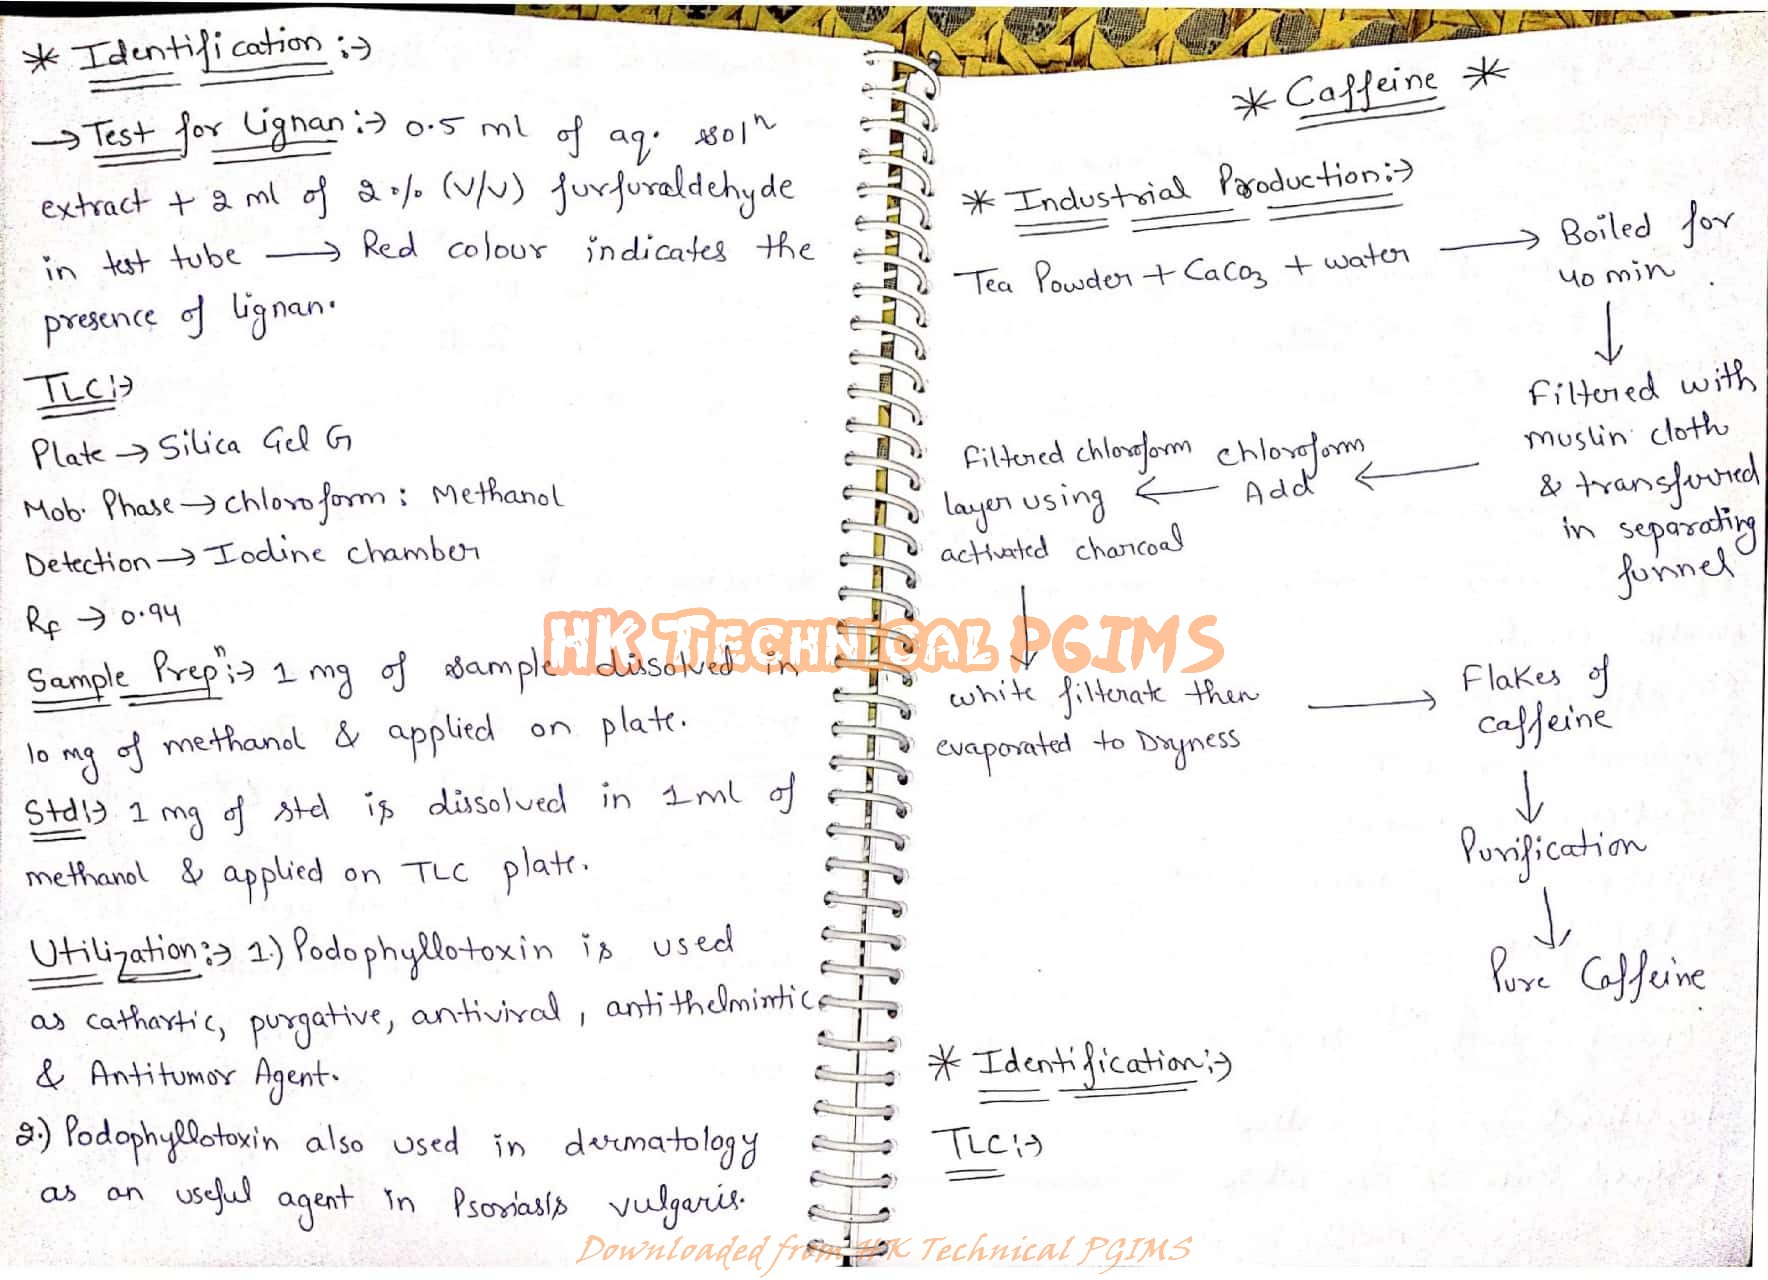 * Identification :→
→ Test for Lignan :→ 0.5 ml of aq. solⁿ
extract + 2 ml of 2% (V/V) furfuraldehyde
in test tube ⟶ Red colour indicates the
presence of lignan.
TLC :→
Plate → Silica Gel G
Mob. Phase → chloroform : Methanol
Detection → Iodine chamber
Rf → 0.94
Sample Prepⁿ :→ 1 mg of sample dissolved in
10 mg of methanol & applied on plate.
Std :→ 1 mg of std is dissolved in 1 ml of
methanol & applied on TLC plate.
Utilization :→ 1.) Podophyllotoxin is used
as cathartic, purgative, antiviral, antithelmintic
& Antitumor Agent.
2.) Podophyllotoxin also used in dermatology
as an useful agent in Psoriasis vulgaris.
* Caffeine *
* Industrial Production :→
Tea Powder + CaCO3 + water ⟶ Boiled for
40 min
↓
Filtered with
muslin cloth
& transferred
in separating
funnel
← chloroform
Add
← Filtered chloroform
layer using
activated charcoal
↓
white filterate then
evaporated to Dryness
⟶ Flakes of
caffeine
↓
Purification
↓
Pure Caffeine
* Identification :→
TLC :→
HK Technical PGIMS
Downloaded from HK Technical PGIMS